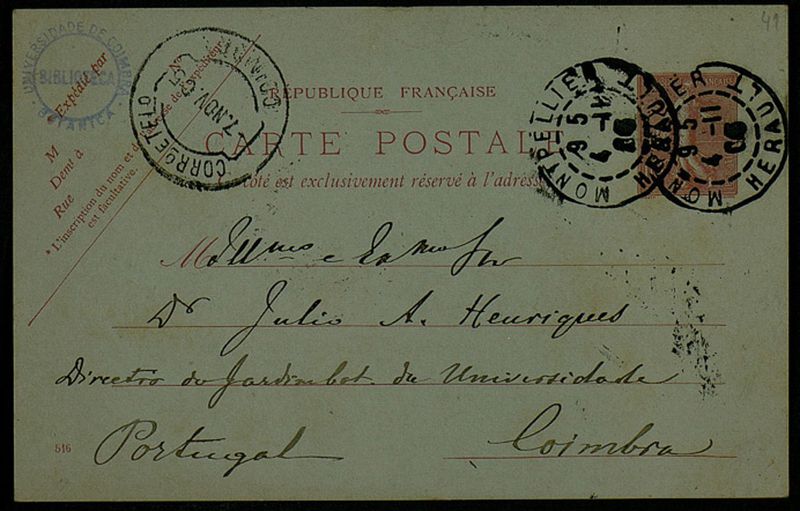 UNIVERSIDADE DE COIMBRA
BIBLIOTECA
BOTANICA
Expédié par
M
Demt à
Rue
* L'inscription du nom et de
l'adresse de l'expéditeur
est facultative.
7. NOV. 05
CORRo E TELo
41
RÉPUBLIQUE FRANÇAISE
CARTE POSTALE
Ce côté est exclusivement réservé à l'adresse
MONTPELLIER
HERAULT
9 5
4 -11
MONTPELLIER
HERAULT
9 5
4 -11
M
Illmo e Exmo Snr
Dr Julio A. Henriques
Director do Jardim bot. da Universidade
Portugal Coimbra
516